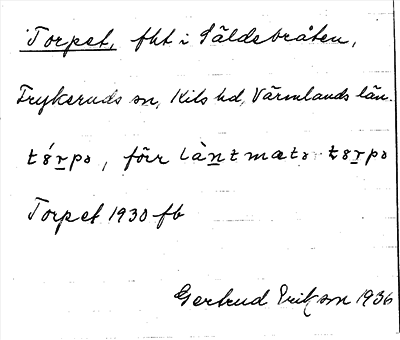 Torpet, fht i Säldebråten,
Frykeruds sn, Kils hd, Värmlands län.
tɜ́r̠pə, förr làn̠tmætə tɜr̠pə
Torpet 1930 fb
Gertrud Erikson 1936